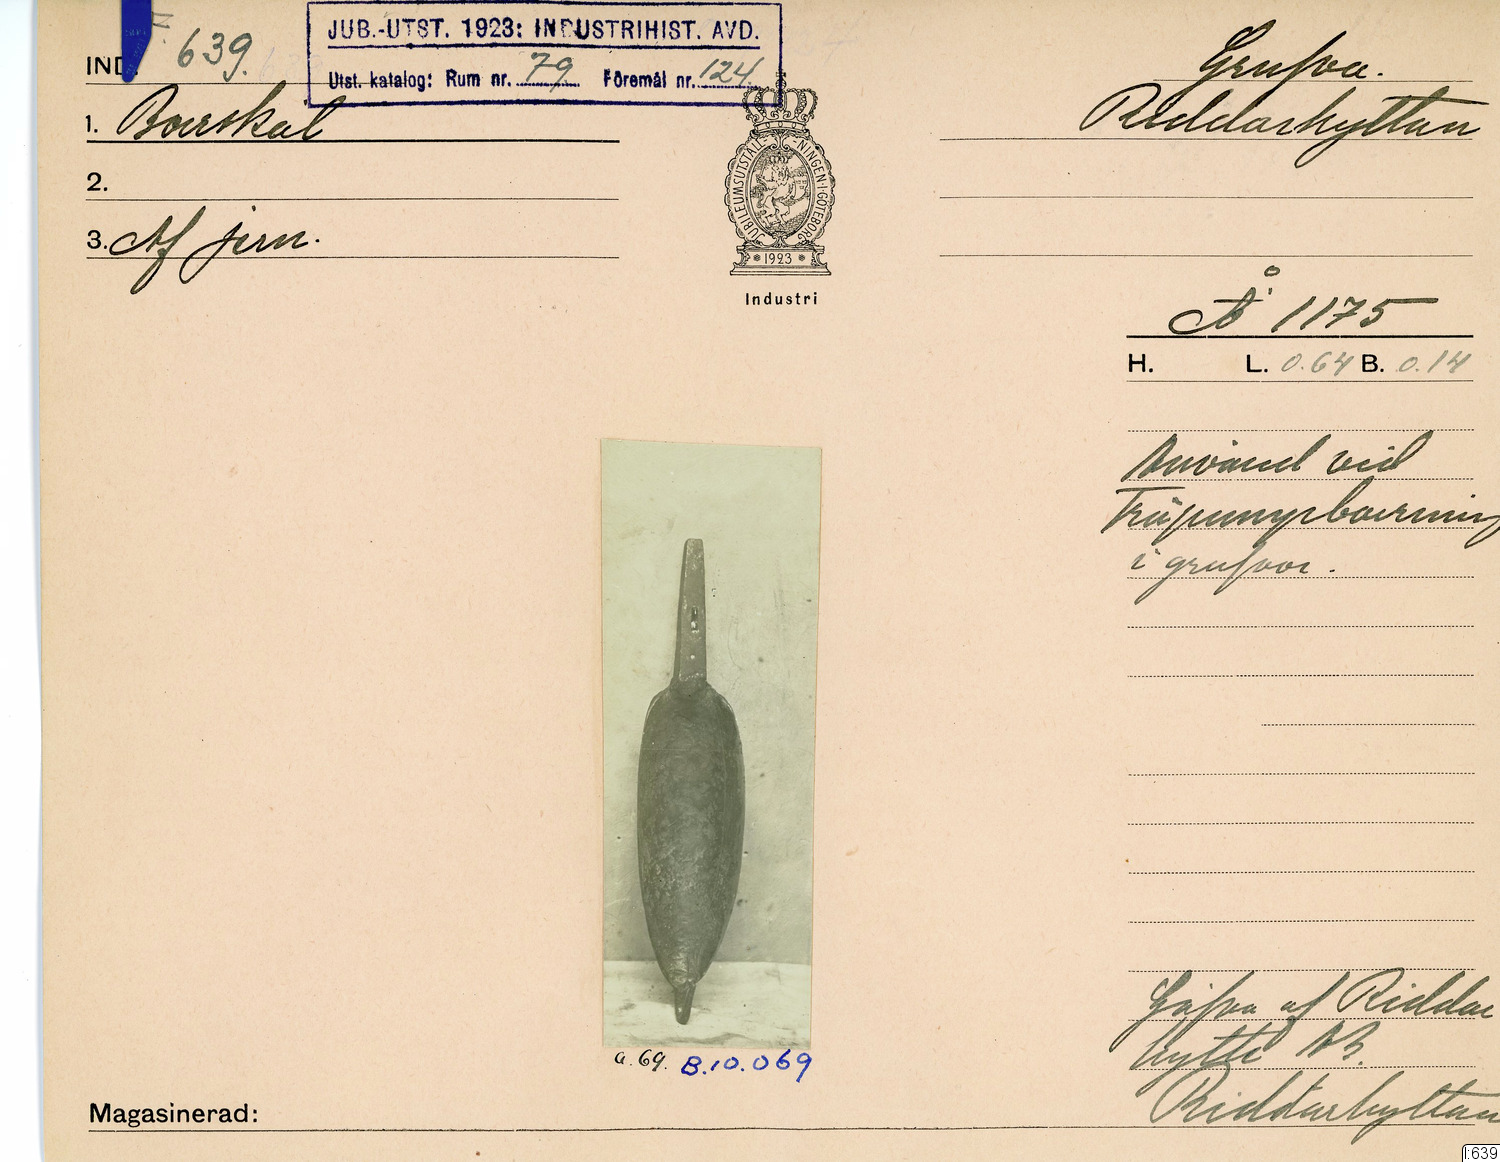 JUB.-UTST. 1923: INDUSTRIHIST. AVD.
Utst. katalog: Rum nr. 79 Föremål nr. 124
IND. 639.
Grufva.
1. Borrskål
Riddarhyttan
2.
3. Af jern.
JUBILEUMSUTSTÄLL-NINGEN I GÖTEBORG
1923
Industri
Å 1175
H. L. 0.64 B. 0.14
Använd vid
Träpumpsborrning
i grufvor.
Gåfva af Riddar
hytte AB.
Riddarhyttan
a. 69. B.10.069
Magasinerad:
I:639